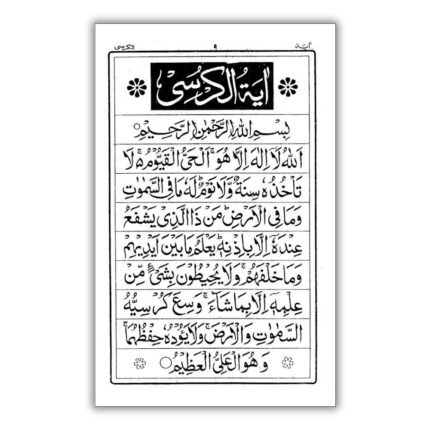 اٰیة ٩ الکرسی
اٰیَةُ الْکُرْسِیْ
بِسْمِ اللهِ الرَّحْمٰنِ الرَّحِیْمِ
اَللهُ لَاۤ اِلٰهَ اِلَّا هُوَ ۚ اَلْحَیُّ الْقَیُّوْمُ ۚ لَا
تَاْخُذُهٗ سِنَةٌ وَّلَا نَوْمٌ ؕ لَهٗ مَا فِی السَّمٰوٰتِ
وَمَا فِی الْاَرْضِ ؕ مَنْ ذَا الَّذِیْ یَشْفَعُ
عِنْدَهٗۤ اِلَّا بِاِذْنِهٖ ؕ یَعْلَمُ مَا بَیْنَ اَیْدِیْهِمْ
وَمَا خَلْفَهُمْ ۚ وَلَا یُحِیْطُوْنَ بِشَیْءٍ مِّنْ
عِلْمِهٖۤ اِلَّا بِمَا شَآءَ ۚ وَسِعَ کُرْسِیُّهُ
السَّمٰوٰتِ وَالْاَرْضَ ۚ وَلَا یَـُٔوْدُهٗ حِفْظُهُمَا ۚ
وَهُوَ الْعَلِیُّ الْعَظِیْمُ